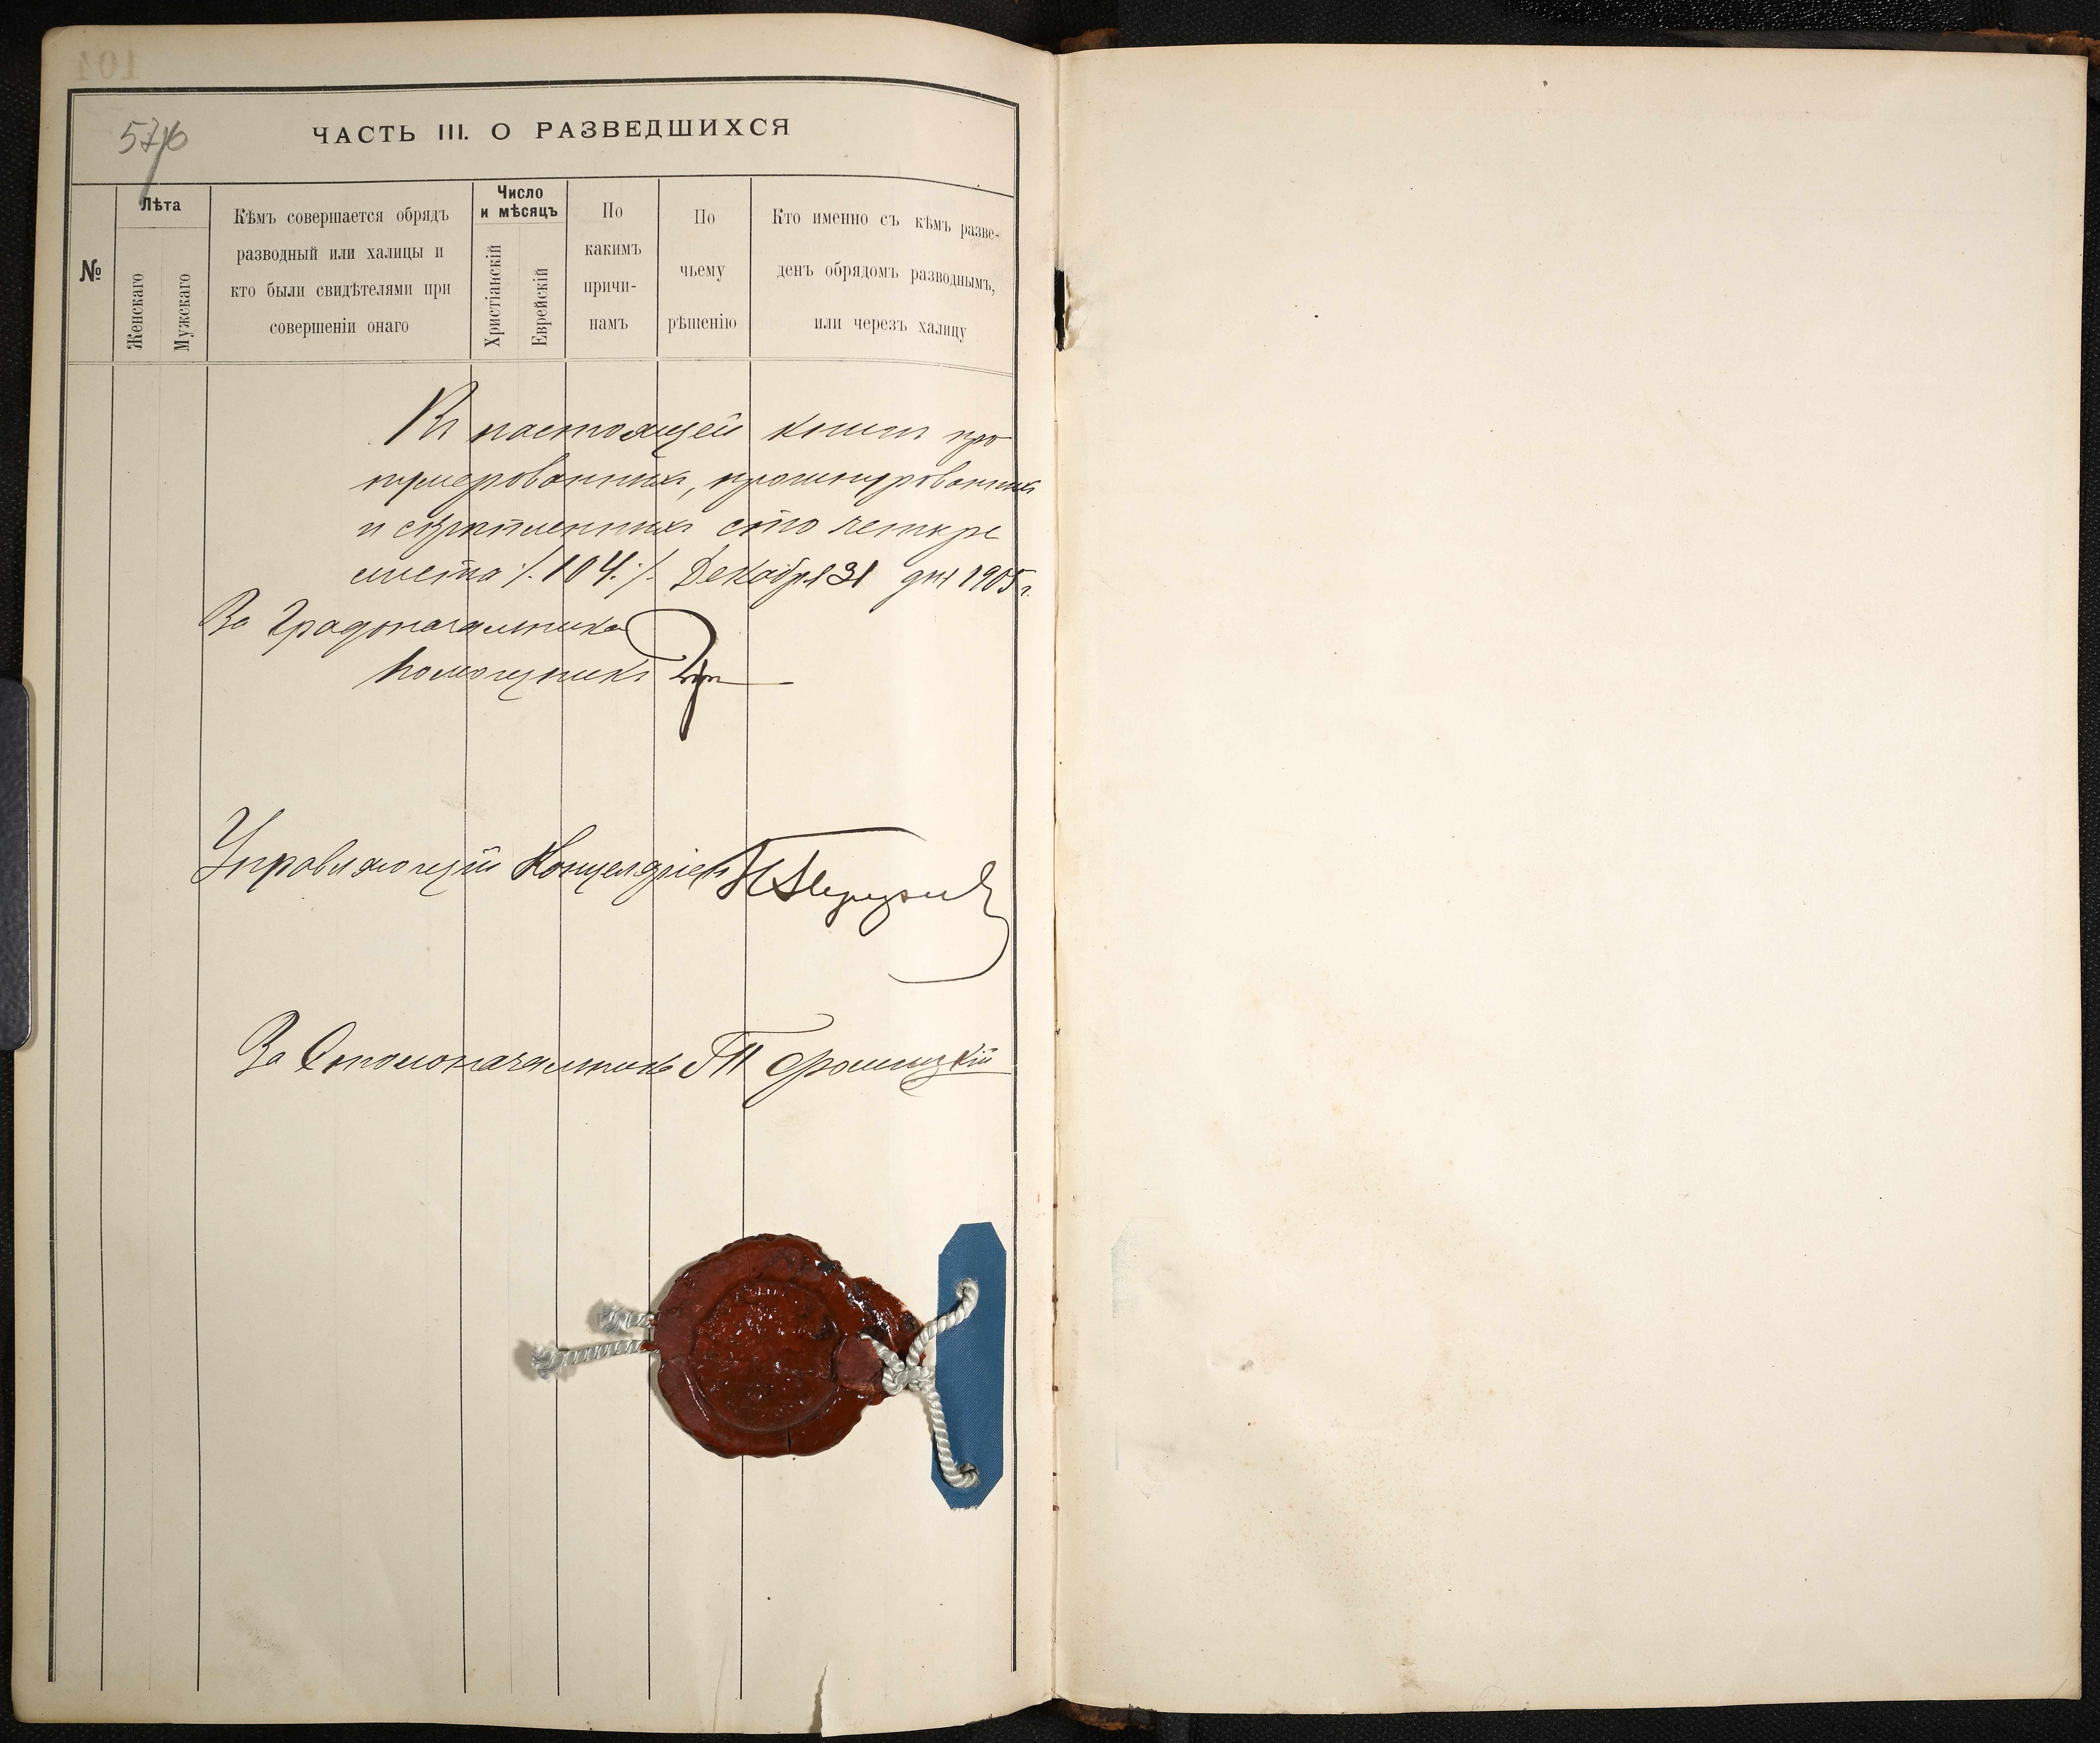 104
576
ЧАСТЬ III. О РАЗВЕДШИХСЯ
№
Лѣта
Женскаго
Мужскаго
Кѣмъ совершается обрядъ
разводный или халицы и
кто были свидѣтелями при
совершеніи онаго
Число
и мѣсяцъ
Христіанскій
Еврейскій
По
какимъ
причи-
намъ
По
чьему
рѣшенію
Кто именно съ кѣмъ разве-
денъ обрядомъ разводнымъ,
или черезъ халицу
Въ настоящей книгѣ про
нумерованныхъ, прошнурованныхъ
и скрѣпленныхъ сто четыре
листа /.104./. Декабря 31 дня 1905 г.
За Градоначальника
Помощникъ
Управляющій Канцеляріей
За Столоначальника